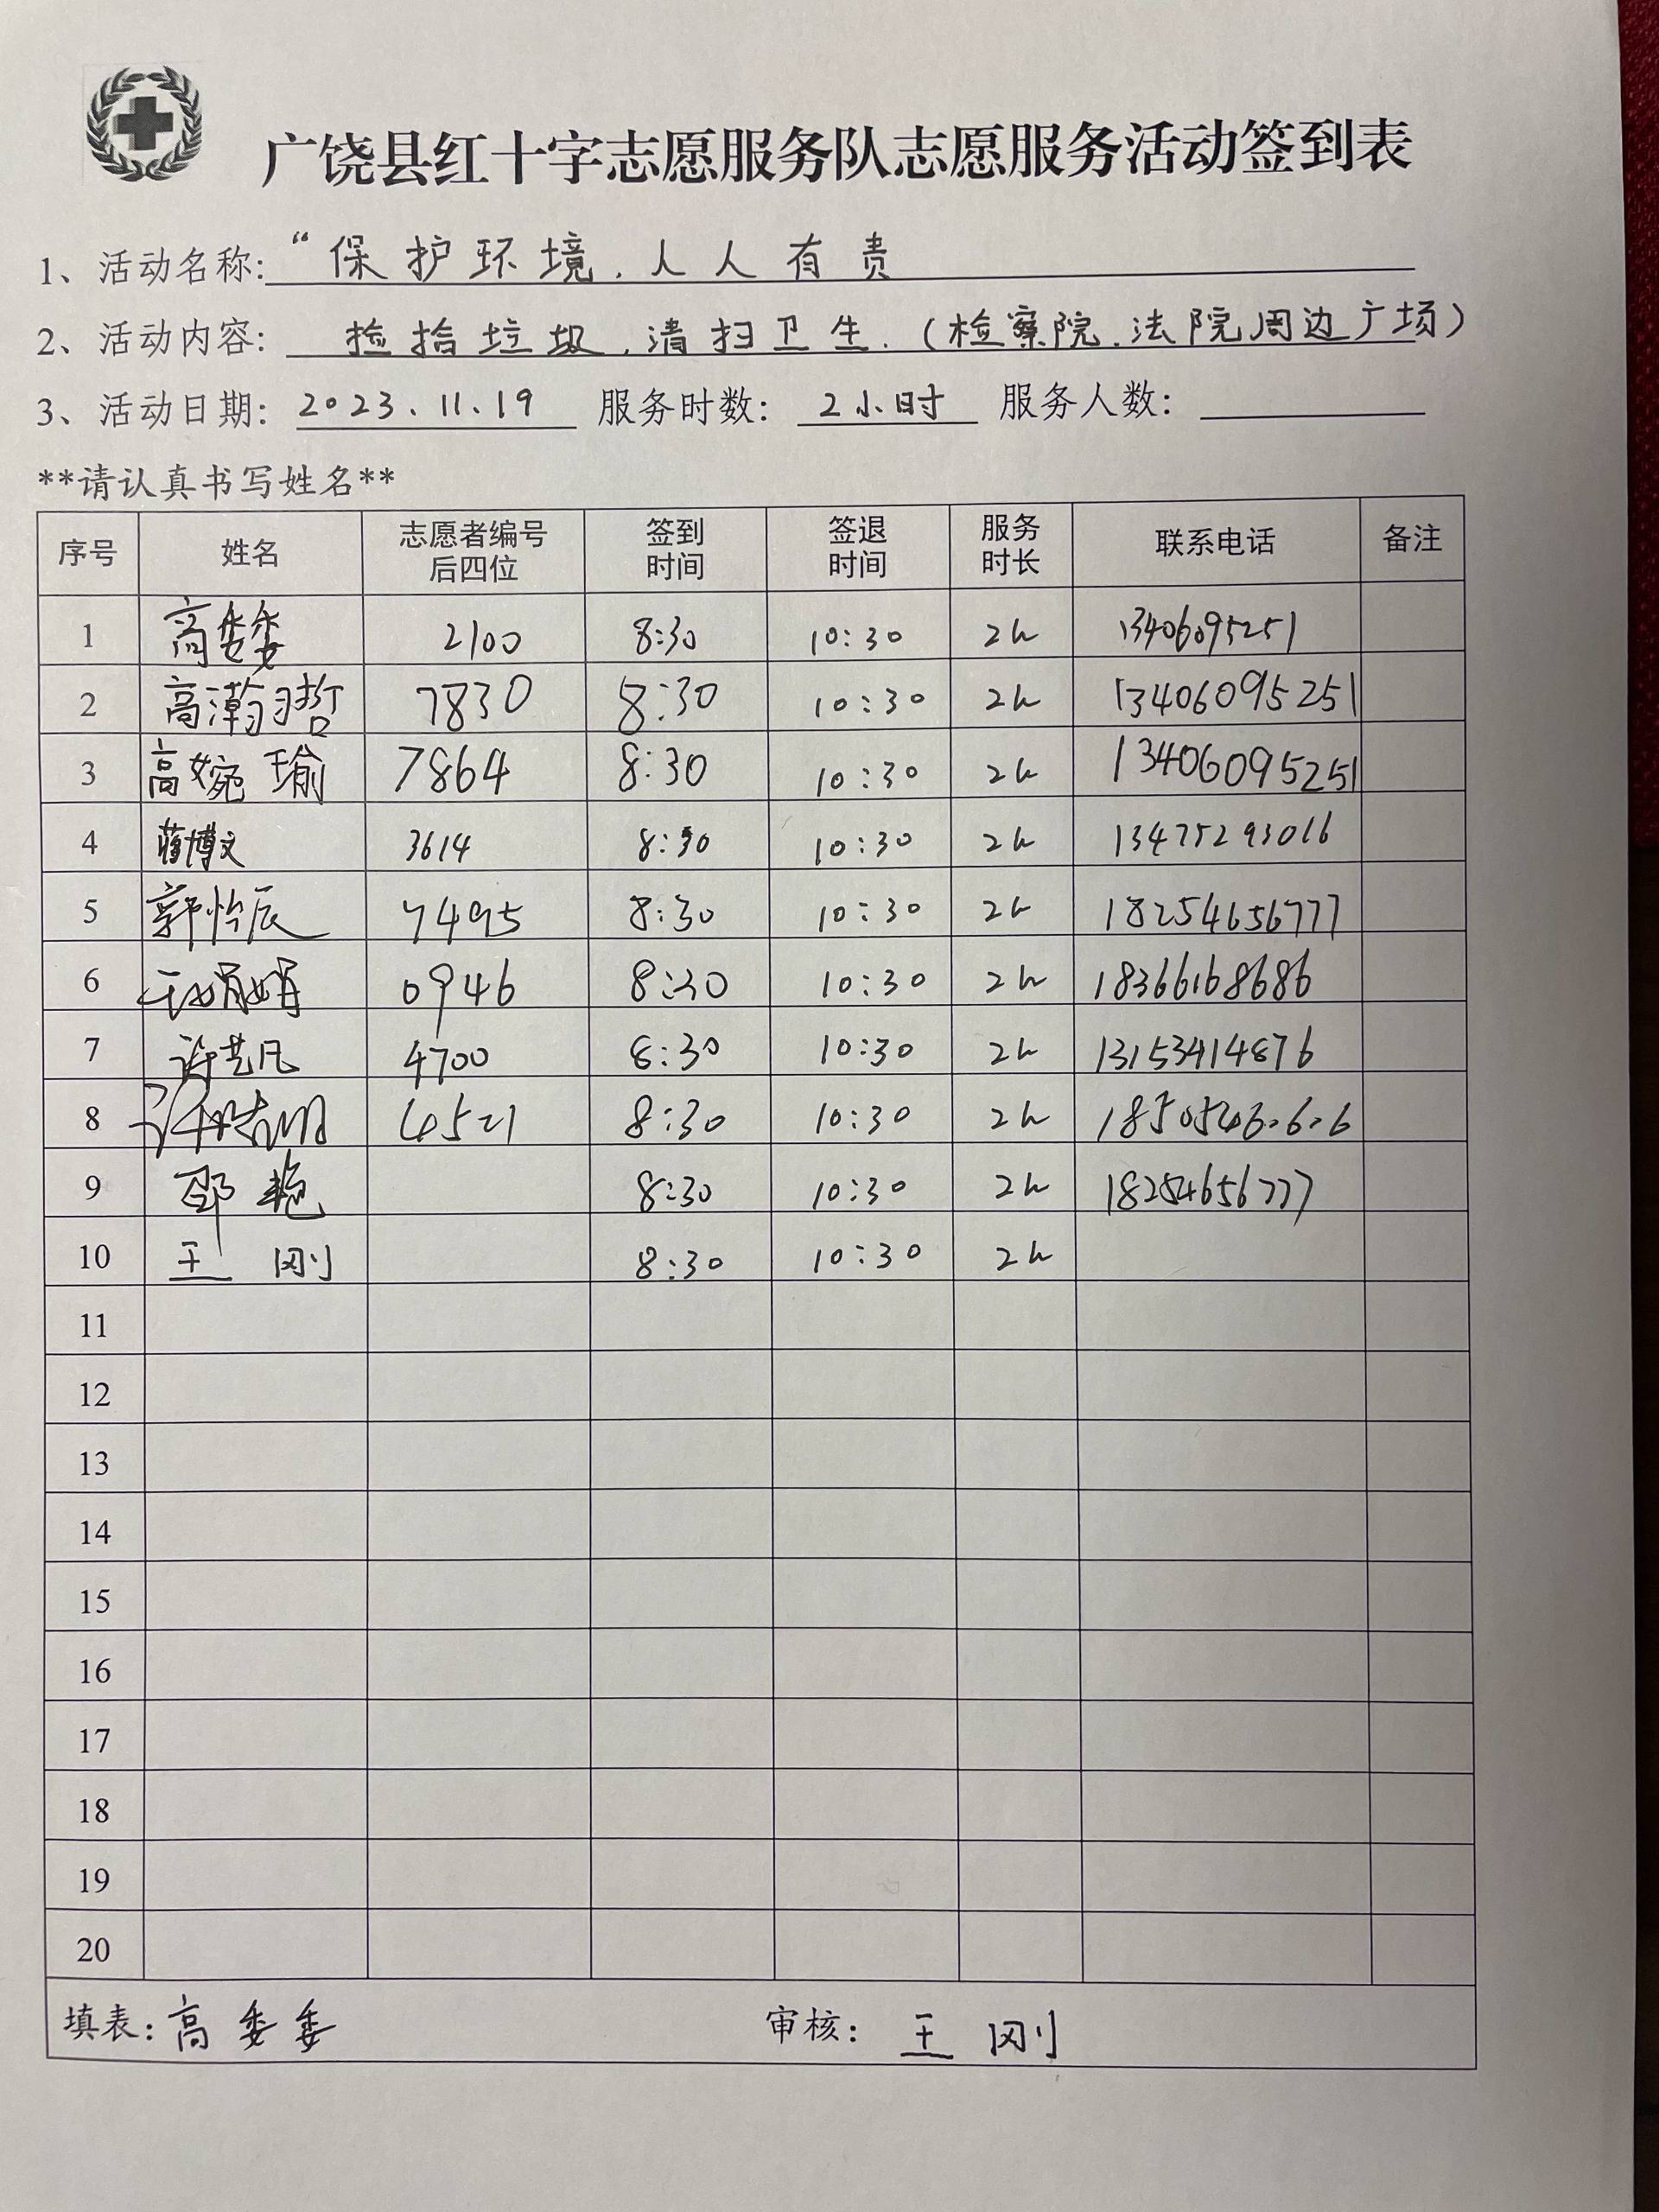 广饶县红十字志愿服务队志愿服务活动签到表
1、活动名称:“保护环境.人人有责
2、活动内容: 捡拾垃圾.清扫卫生.(检察院.法院周边广场)
3、活动日期: 2023.11.19 服务时数: 2小时 服务人数:
**请认真书写姓名**
序号 姓名 志愿者编号后四位 签到时间 签退时间 服务时长 联系电话 备注
1 高委委 2100 8:30 10:30 2h 13406095251
2 高瀚哲 7830 8:30 10:30 2h 13406095251
3 高婉瑜 7864 8:30 10:30 2h 13406095251
4 蒋博文 3614 8:30 10:30 2h 13475293016
5 郭怜辰 7495 8:30 10:30 2h 18254656777
6 王娟娟 0946 8:30 10:30 2h 18366168686
7 许艺凡 4700 8:30 10:30 2h 13153414876
8 8:30 10:30 2h
9 邵艳 8:30 10:30 2h 18254656777
10 王刚 8:30 10:30 2h
11
12
13
14
15
16
17
18
19
20
填表: 高委委 审核: 王刚